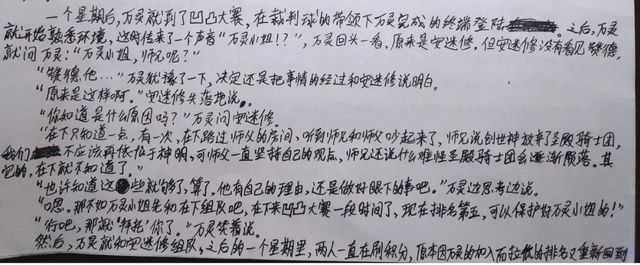 一个星期后，万灵就到了凹凸大赛，在裁判球的带领下万灵完成的终端登陆。之后，万灵
就开始熟悉环境，这时传来了个声音“万灵小姐!?”，万灵回头一看，原来是安迷修，但安迷修没有看见赞德，
就问万灵：“万灵小姐，师兄呢？”
“赞德他…”万灵犹豫了一下，决定还是把事情的经过和安迷修说明白。
“原来是这样啊。”安迷修失落地说。
“你知道是什么原因吗？”万灵问安迷修。
“在下只知道一点，有一次，在下路过师父的房间，听到师兄和师父吵起来了，师兄说创世神放弃了圣殿骑士团，
我们不应该再依从于神明，可师父一直坚持自己的观点，师兄还说什么难怪圣殿骑士团会逐渐陨落。其
它的，在下就不知道了。”
“也许知道这些就够了，算了，他有自己的理由，还是做好眼下的事吧。”万灵边思考边说。
“嗯。那不如万灵小姐先和在下组队吧，在下来凹凸大赛一段时间了，现在排名第五，可以保护好万灵小姐的!”
“行吧，那就‘拜托’你了。”万灵笑着说。
然后，万灵就和安迷修组队，之后的一个星期里，两人一直在刷积分，原本因万灵的加入而拉低的排名又重新回到